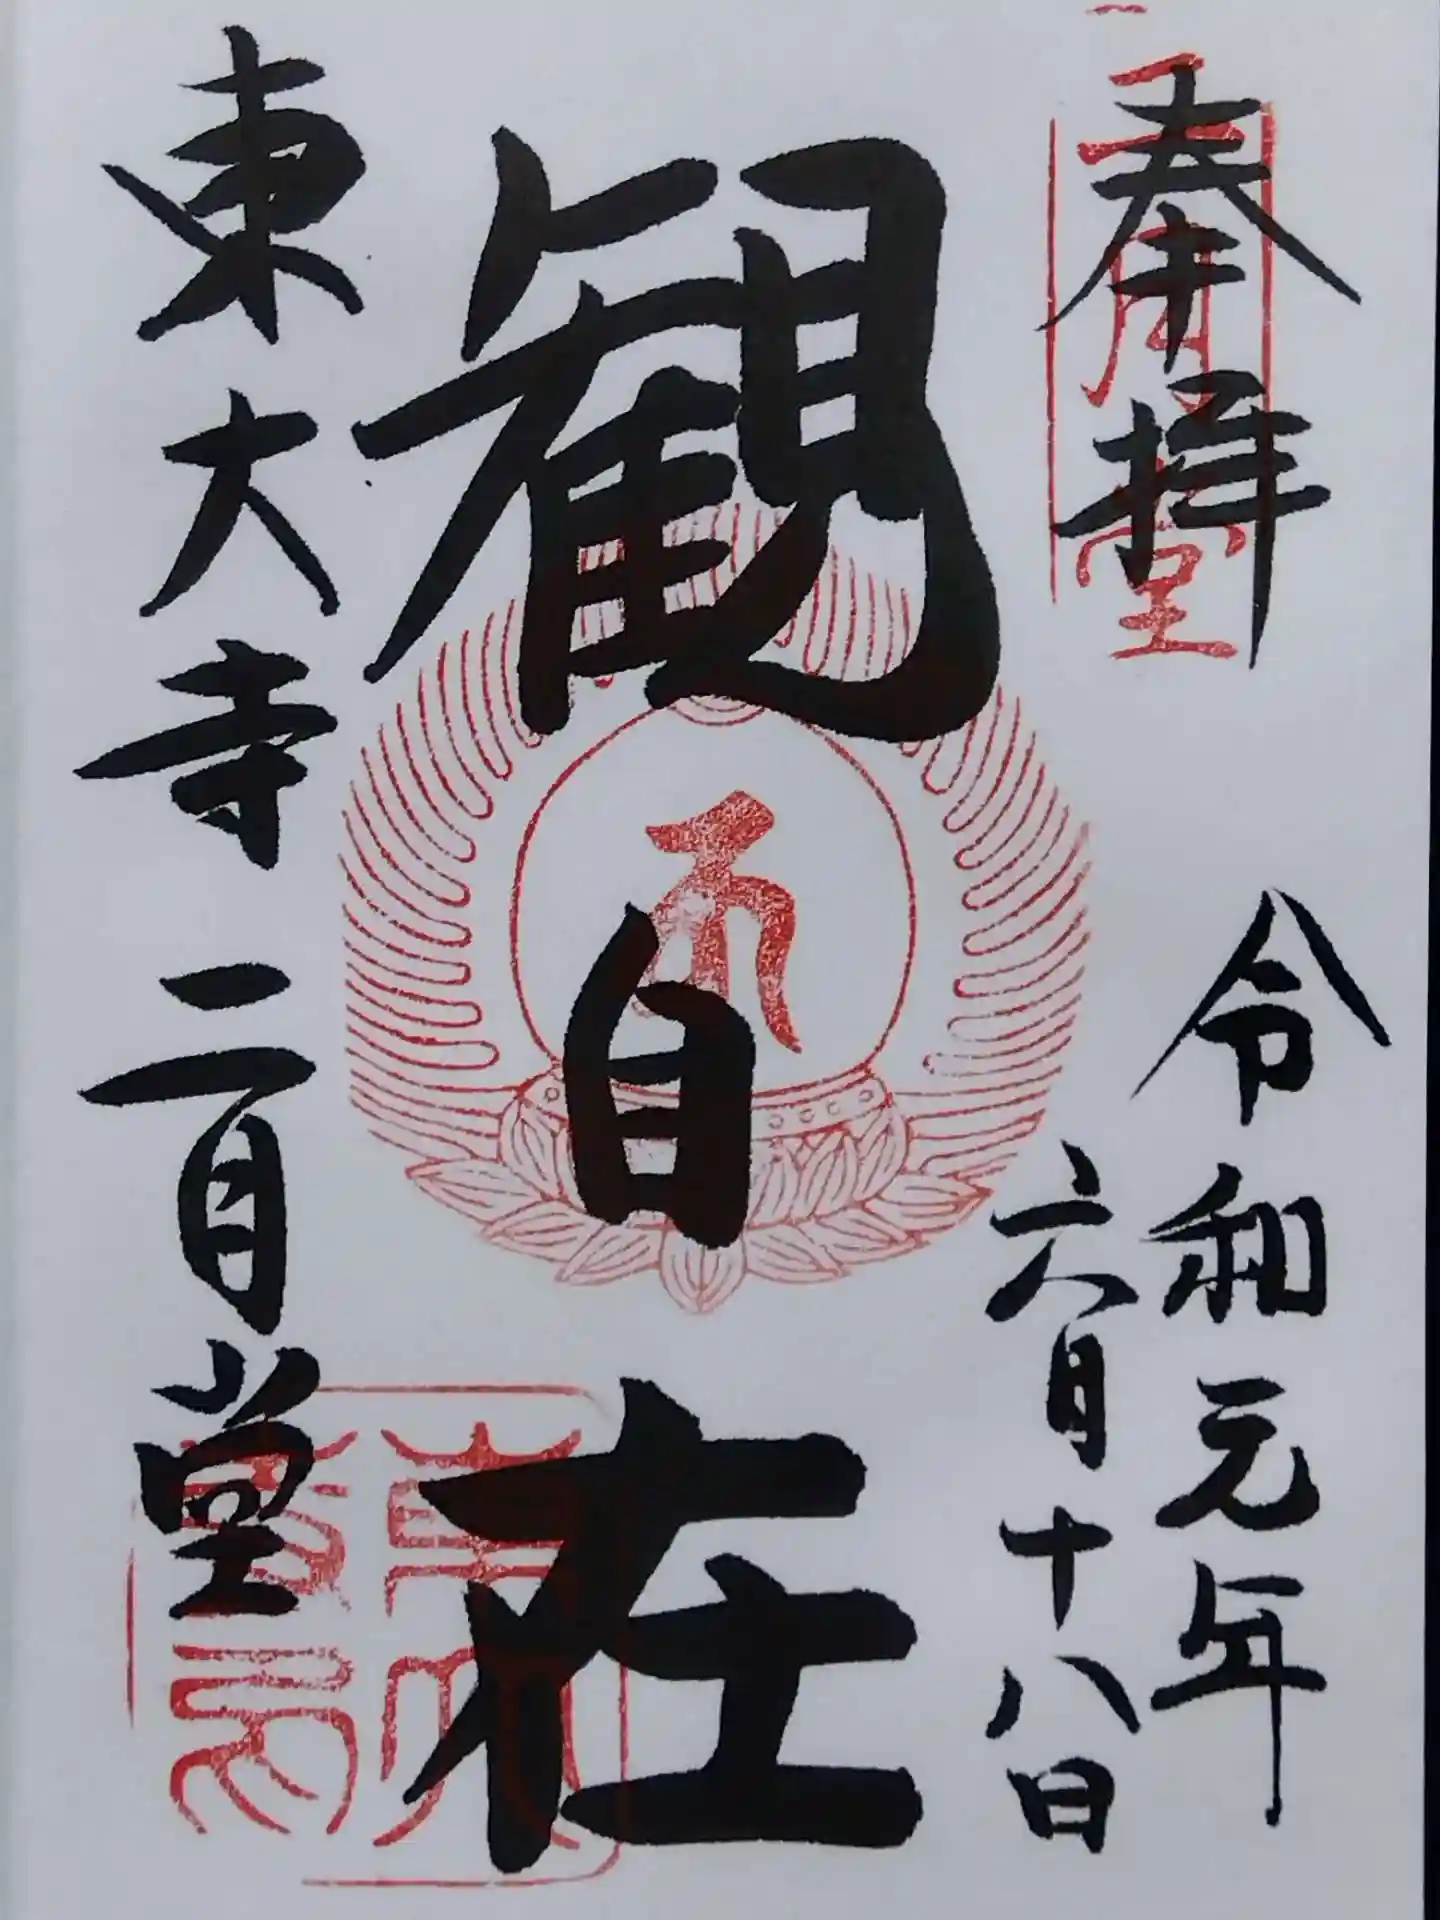 奉拝
二月堂
令和元年
六月十八日
観自在
東大寺二月堂